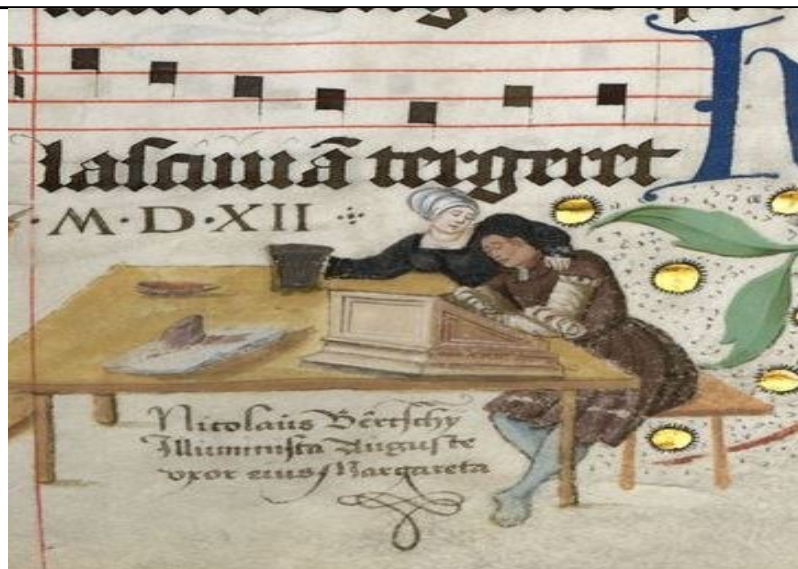 lasciuiā tergeret
·M·D·XII·
Nicolaüs Bêrtschy
Illuminista Auguste
vxor eius Margareta